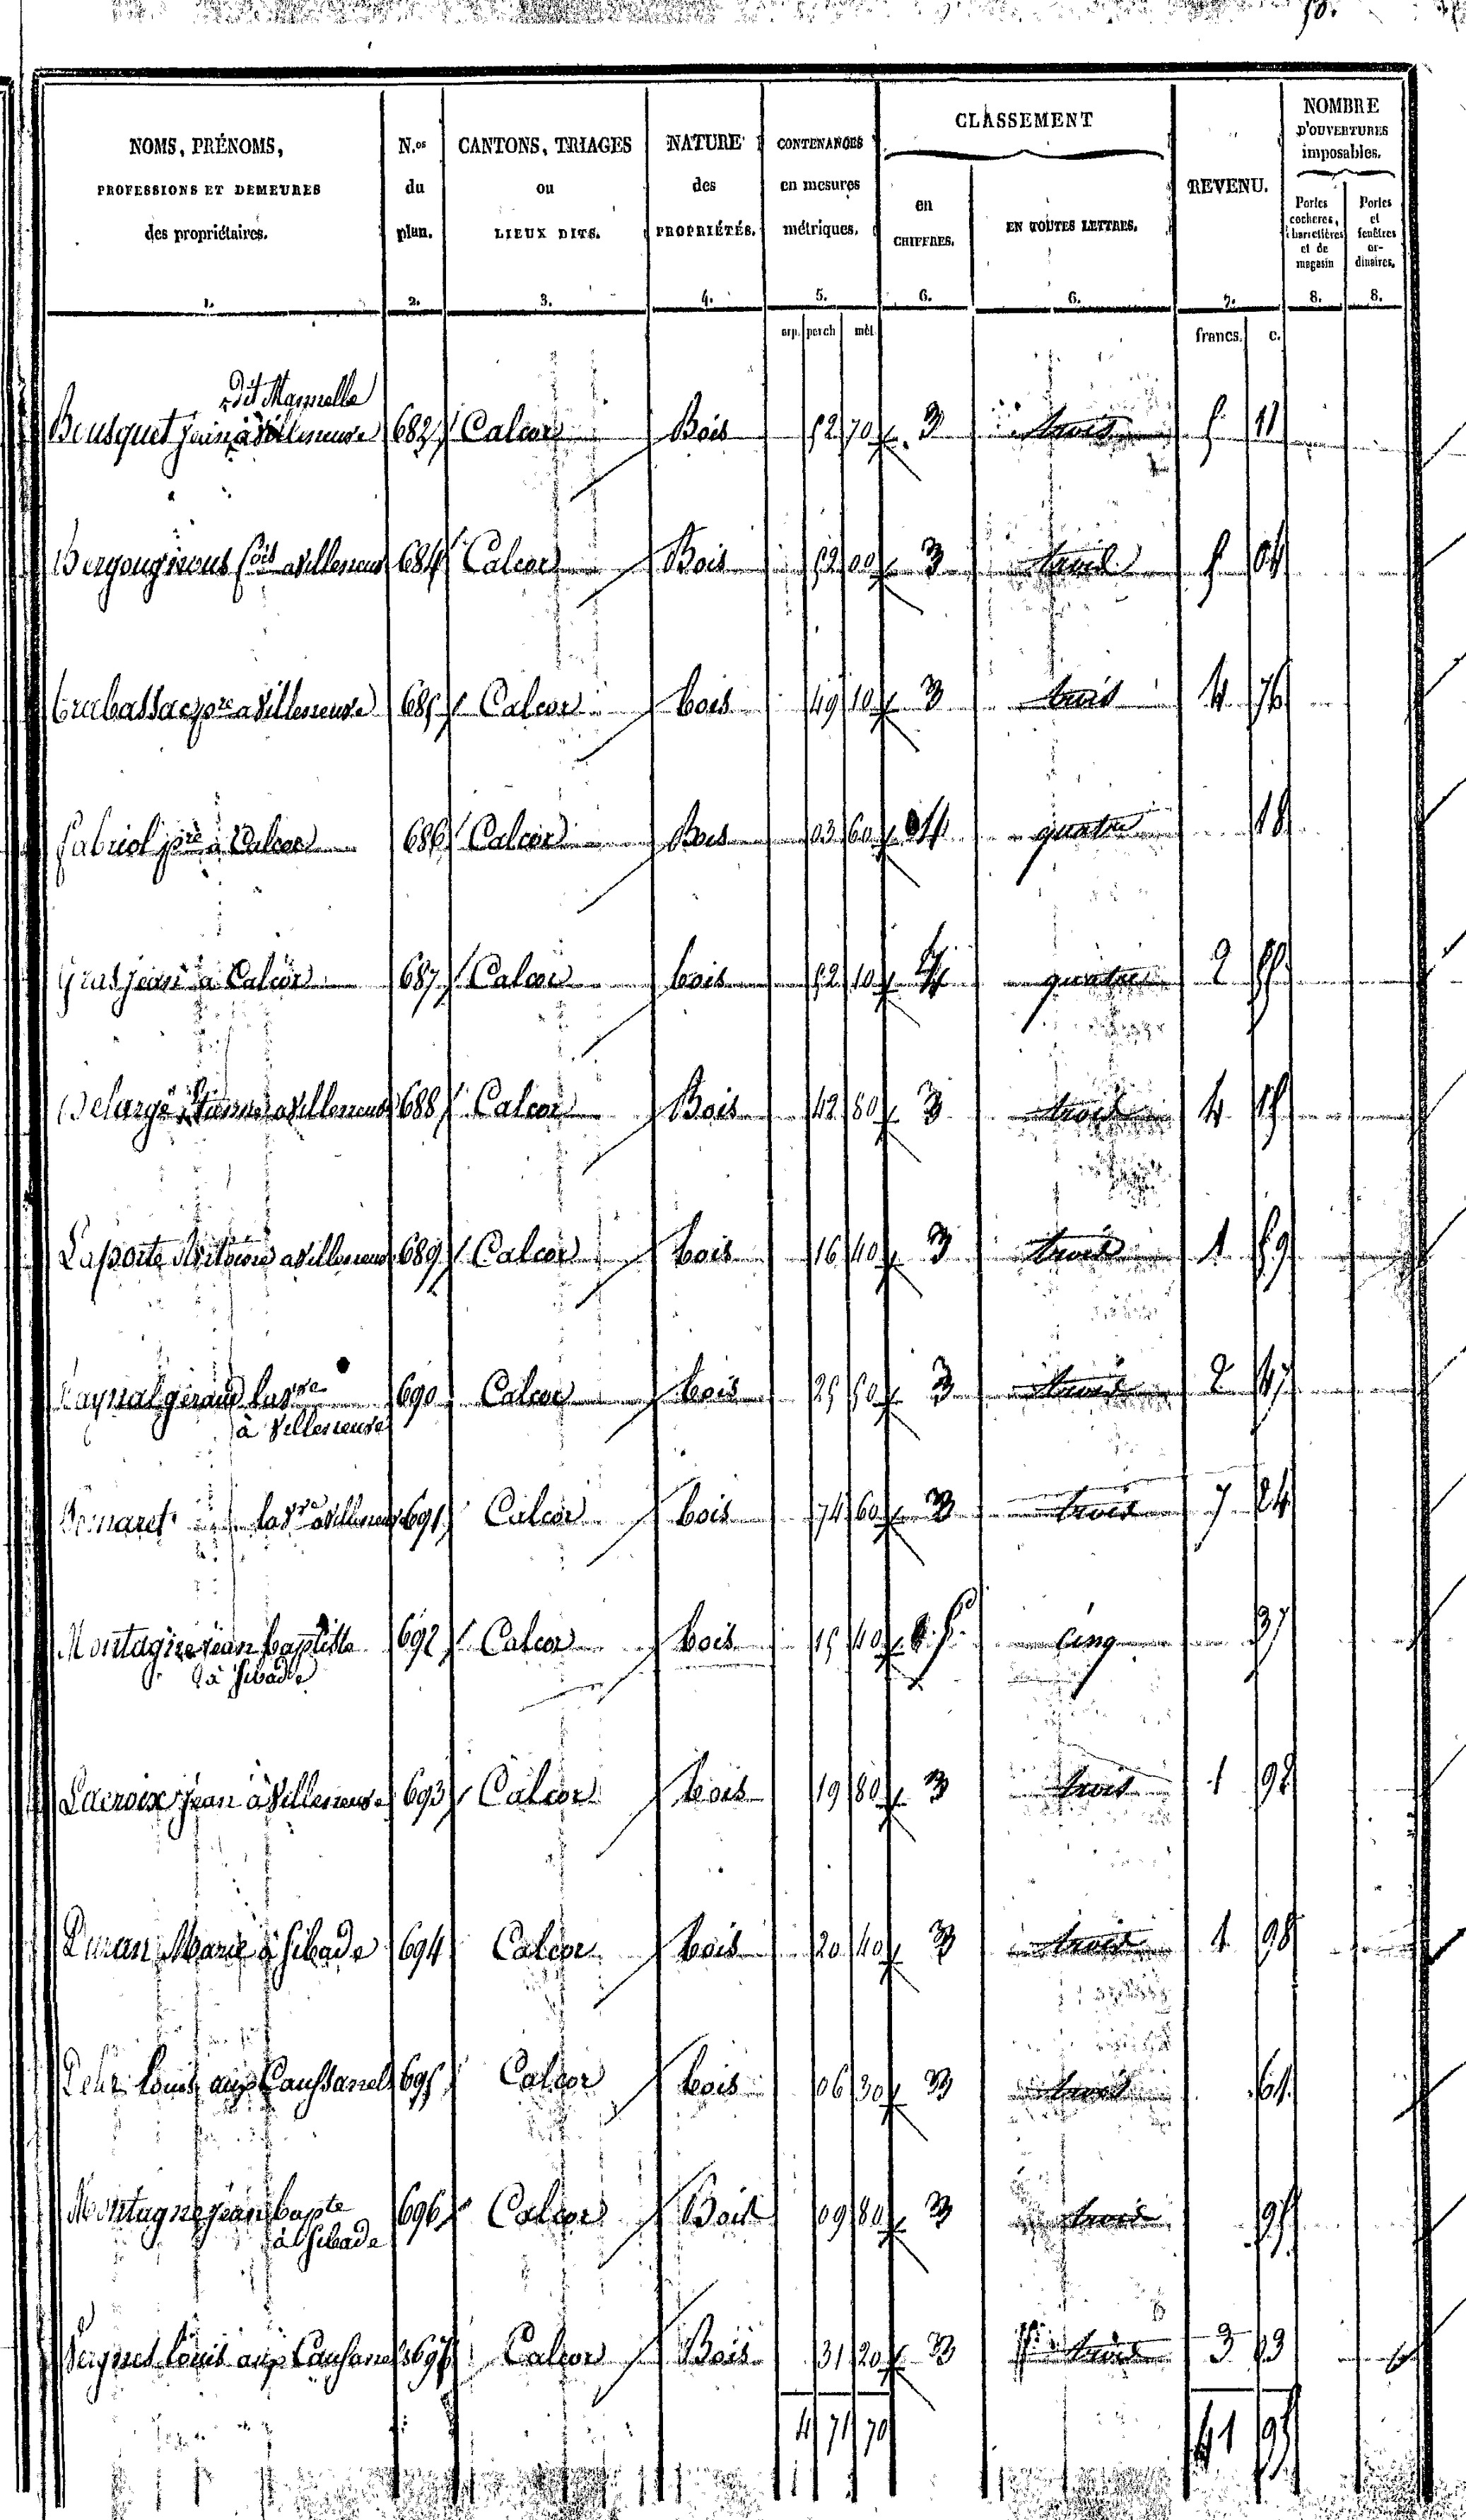 50.
NOMS, PRÉNOMS,
PROFESSIONS ET DEMEURES
des propriétaires.
1.
N.os
du
plan.
2.
CANTONS, TRIAGES
ou
LIEUX DITS.
3.
NATURE
des
PROPRIÉTÉS.
4.
CONTENANCES
en mesures
métriques.
5.
CLASSEMENT
en
CHIFFRES.
6.
EN TOUTES LETTRES.
6.
REVENU.
7.
NOMBRE
D'OUVERTURES
imposables.
Portes cocheres, charretières et de magasin
8.
Portes et fenêtres ordinaires.
8.
arp. perch mèt. francs. c.
dit
Bousquet jean à Villeneuve 683 Calcor Bois 52 70 3 trois 5 11
Villeneuve 684 Calcor Bois 52 00 3 trois 5 04
a Villeneuve 685 Calcor bois 49 10 3 trois 4 76
Fabriol à Calcor 686 Calcor Bois 03 60 4 quatre 18
Gras jean à Calcor 687 Calcor bois 52 10 4 quatre 2 55
Delarge etienne a Villeneuve 688 Calcor Bois 42 80 3 trois 4 15
Laporte a Villeneuve 689 Calcor bois 16 40 3 trois 1 59
Raynal géraud 690 Calcor bois 25 50 3 trois 2 47
à Villeneuve
a Villeneuve 691 Calcor bois 74 60 3 trois 7 24
Montagne jean baptiste 692 Calcor bois 15 40 5 cinq 37
à Sibade
Lacroix jean à Villeneuve 693 Calcor bois 19 80 3 trois 1 92
Duran Marie à Sibade 694 Calcor bois 20 40 3 trois 1 98
louis aux Caussanels 695 Calcor bois 06 30 3 trois 61
Montagne jean bapte 696 Calcor Bois 09 80 3 trois 95
à Sibade
louis aux 697 Calcor Bois 31 20 3 trois 3 03
4 71 70 41 95